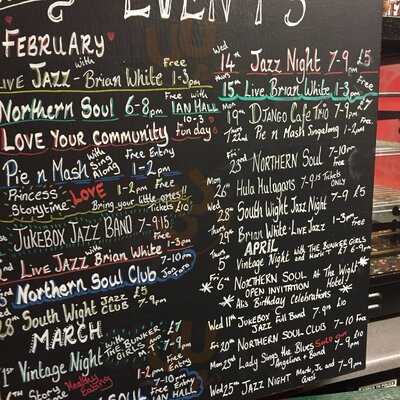 EVENTS
FEBRUARY
LIVE JAZZ with Brian White Free 1-3pm
Northern Soul 6-8pm Free with IAN HALL
LOVE YOUR COMMUNITY 10-3 Fun day
Pie n Mash with Sing Along 1-2pm Free Entry
Princess LOVE 1-2pm Free
Storytime Bring your little ones!! Tickets £10
JUKEBOX JAZZ BAND 7-9.15
Live JAZZ with Brian White Free 1-3pm
Northern Soul Club 7-10pm
28th South Wight JAZZ CLUB £5 7-9pm
MARCH
1st Vintage Night with THE BUNKER GIRLS £7
Story time Healthy Eating 1-2pm Free Entry
7-10pm Free
IAN HALL
Wed 14th Jazz Night 7-9pm £5
Thurs 15th Live Brian White 1-3pm Free
Mon 19th DJANGO Cafe Trio 7-9pm £7
Thurs 22nd Pie n Mash Singalong 1-2pm Free
Fri 23rd NORTHERN SOUL 7-10pm Free
Mon 26th Hula Hulagans 7-9.15 Tickets ONLY
Wed 28th South Wight Jazz Night 7-9pm £5
Thur 29th Brian White Live Jazz 1-3pm Free
APRIL
Thurs 5 Vintage Night with THE BUNKER GIRLS 6-9pm £7
Fri 6th NORTHERN SOUL At The Wight Hotel!
OPEN INVITATION
Isla Birthday Celebrations
Wed 11th JUKEBOX Full Band 7-9pm £10
JAZZ
Fri 20th NORTHERN SOUL CLUB 7-10 Free
Mon 23rd Lady Sings the Blues Sold out £10
Angelina + Band 7-9pm
Wed 25th JAZZ NIGHT Mark, Jo and Guest 7-9pm